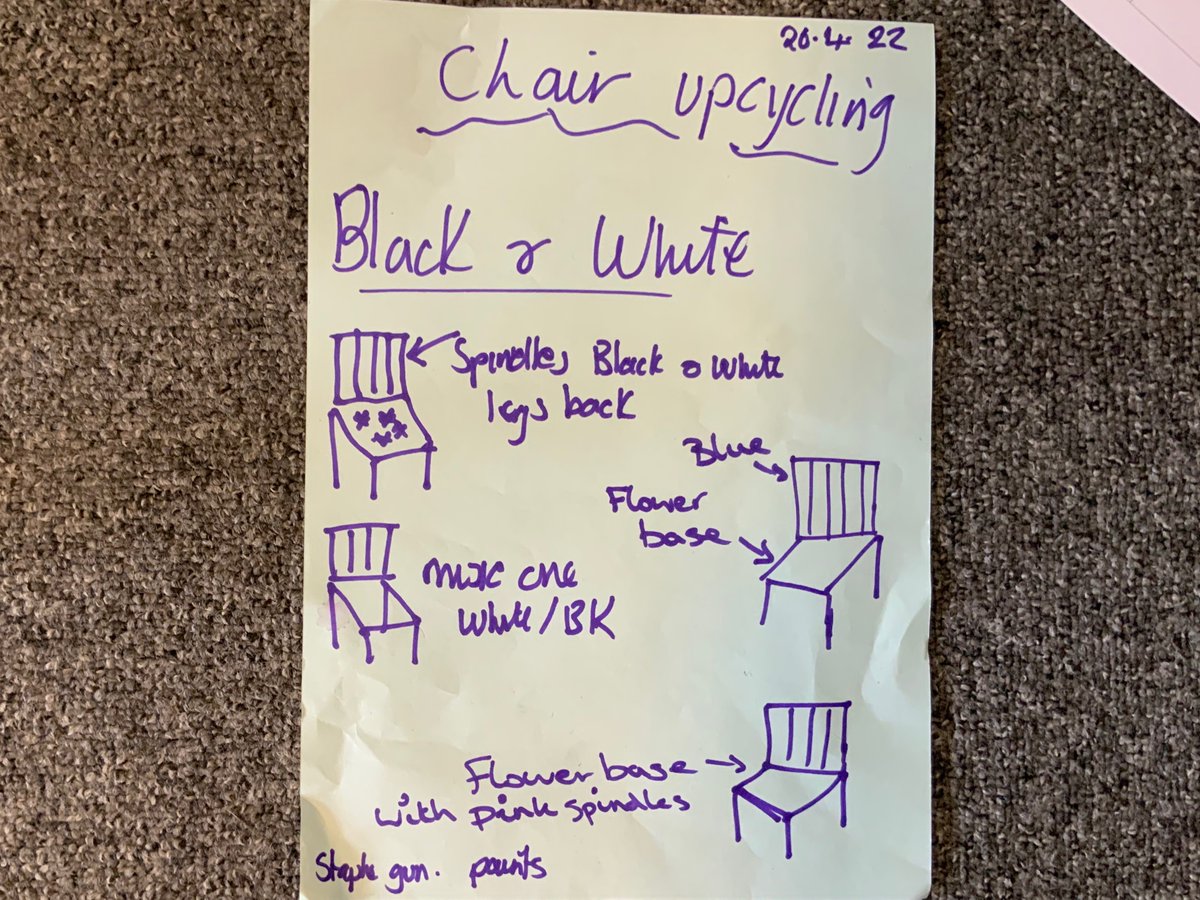 20.4 22
Chair upcycling
Black & White
Spindles Black & White
legs back
Blue
Flower
base
one
White/BK
Flower base
with pink spindles
gun. paints